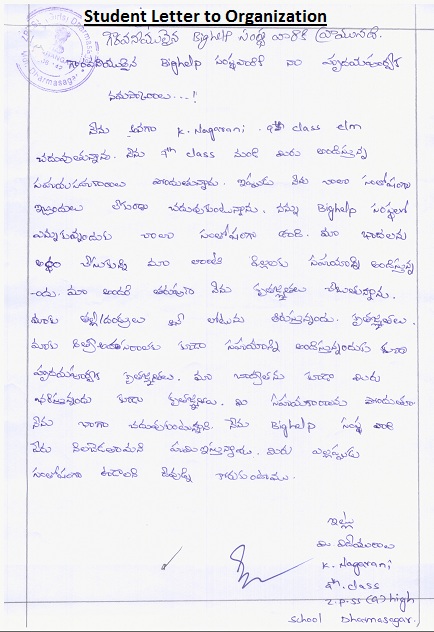 Student Letter to Organization
గౌరవనీయులైన Bighelp సంస్థ వారికి వ్రాయునది.
గౌరవనీయులైన Bighelp సంస్థవారికి నా హృదయపూర్వక
నమస్కారాలు...!
నేను అనగా K. Nagarani. 9th class e/m
చదువుతున్నాను. నేను 9th class నుండి మీరు అందిస్తున్న
సహాయసహకారాలు పొందుతున్నాను. ఇప్పుడు నేను చాలా సంతోషంగా
ఇబ్బందులు లేకుండా చదువుకుంటున్నాను. నన్ను Bighelp సంస్థలో
ఎన్నుకున్నందుకు చాలా సంతోషంగా ఉంది. మా బాధలను
అర్థం చేసుకుని మా లాంటి పిల్లలకు సహాయాన్ని అందిస్తున్న
-రు. మా అందరి తరుపున నేను కృతజ్ఞతలు చెబుతున్నాను.
మాకు తల్లి/దండ్రులు లేని లోటును తీరుస్తున్నందు. కృతజ్ఞతలు.
మాకు అవసరాలకు కూడా సహాయాన్ని అందిస్తున్నందుకు కూడా
హృదయపూర్వక కృతజ్ఞతలు. మా బాధ్యతను కూడా మీరు
భరిస్తున్నందు కూడా కృతజ్ఞతలు. మీ సహాయకారాలను పొందుతూ
నేను బాగా చదువుకుంటున్నాను. నేను Bighelp సంస్థ వారి
పేరు నిలబెడతానని హామీఇస్తున్నాను. మీరు ఎల్లప్పుడు
సంతోషంగా ఉండాలని దేవుణ్ణి కోరుకుంటాను.
ఇట్లు
మీ విధేయురాలు
K. Nagarani
9th. class
Z.P.SS (G) high
school Dharmasagar.